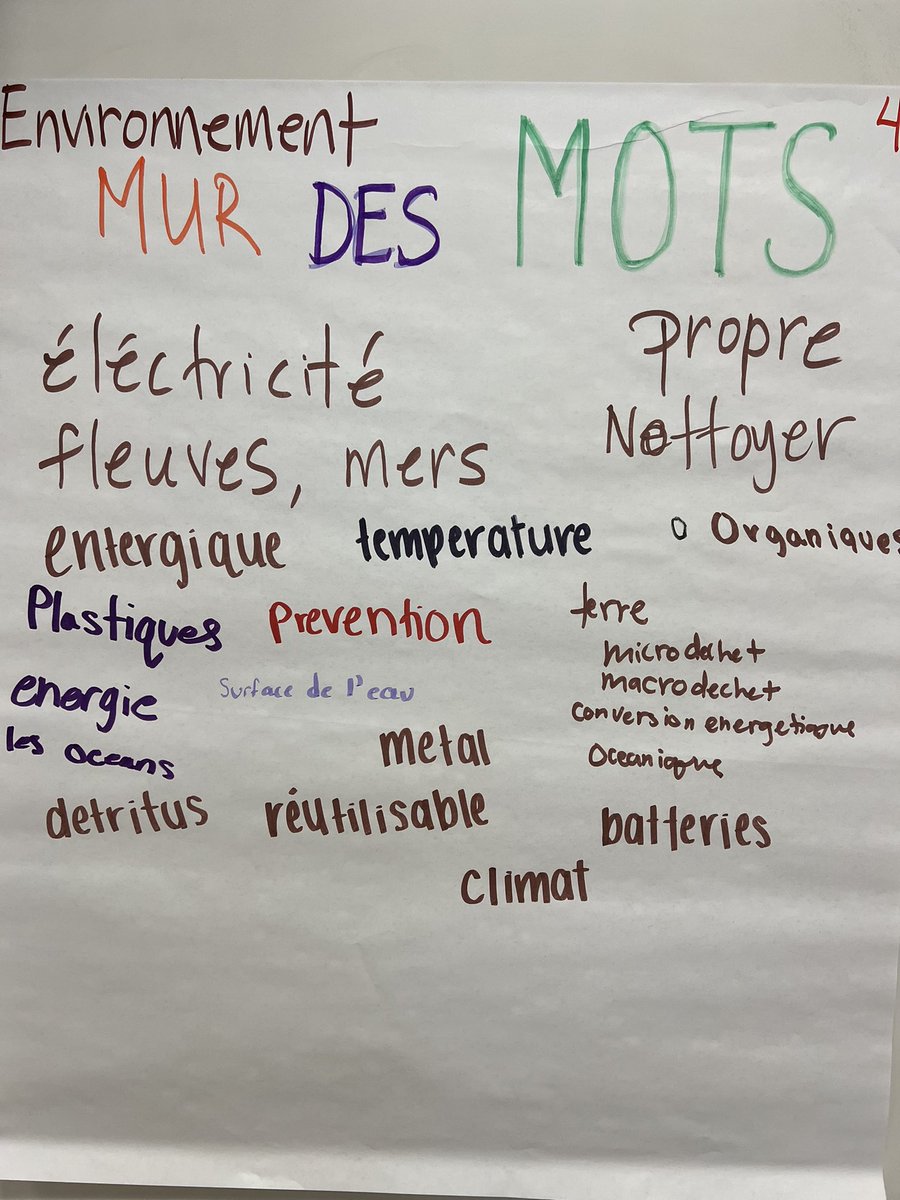 Environnement
4
MUR DES MOTS
éléctricité
propre
fleuves, mers
Nettoyer
entergique temperature o Organiques
Plastiques prevention terre
microdechet
energie surface de l'eau macrodechet
conversion energetique
les oceans metal oceanique
detritus réutilisable batteries
climat